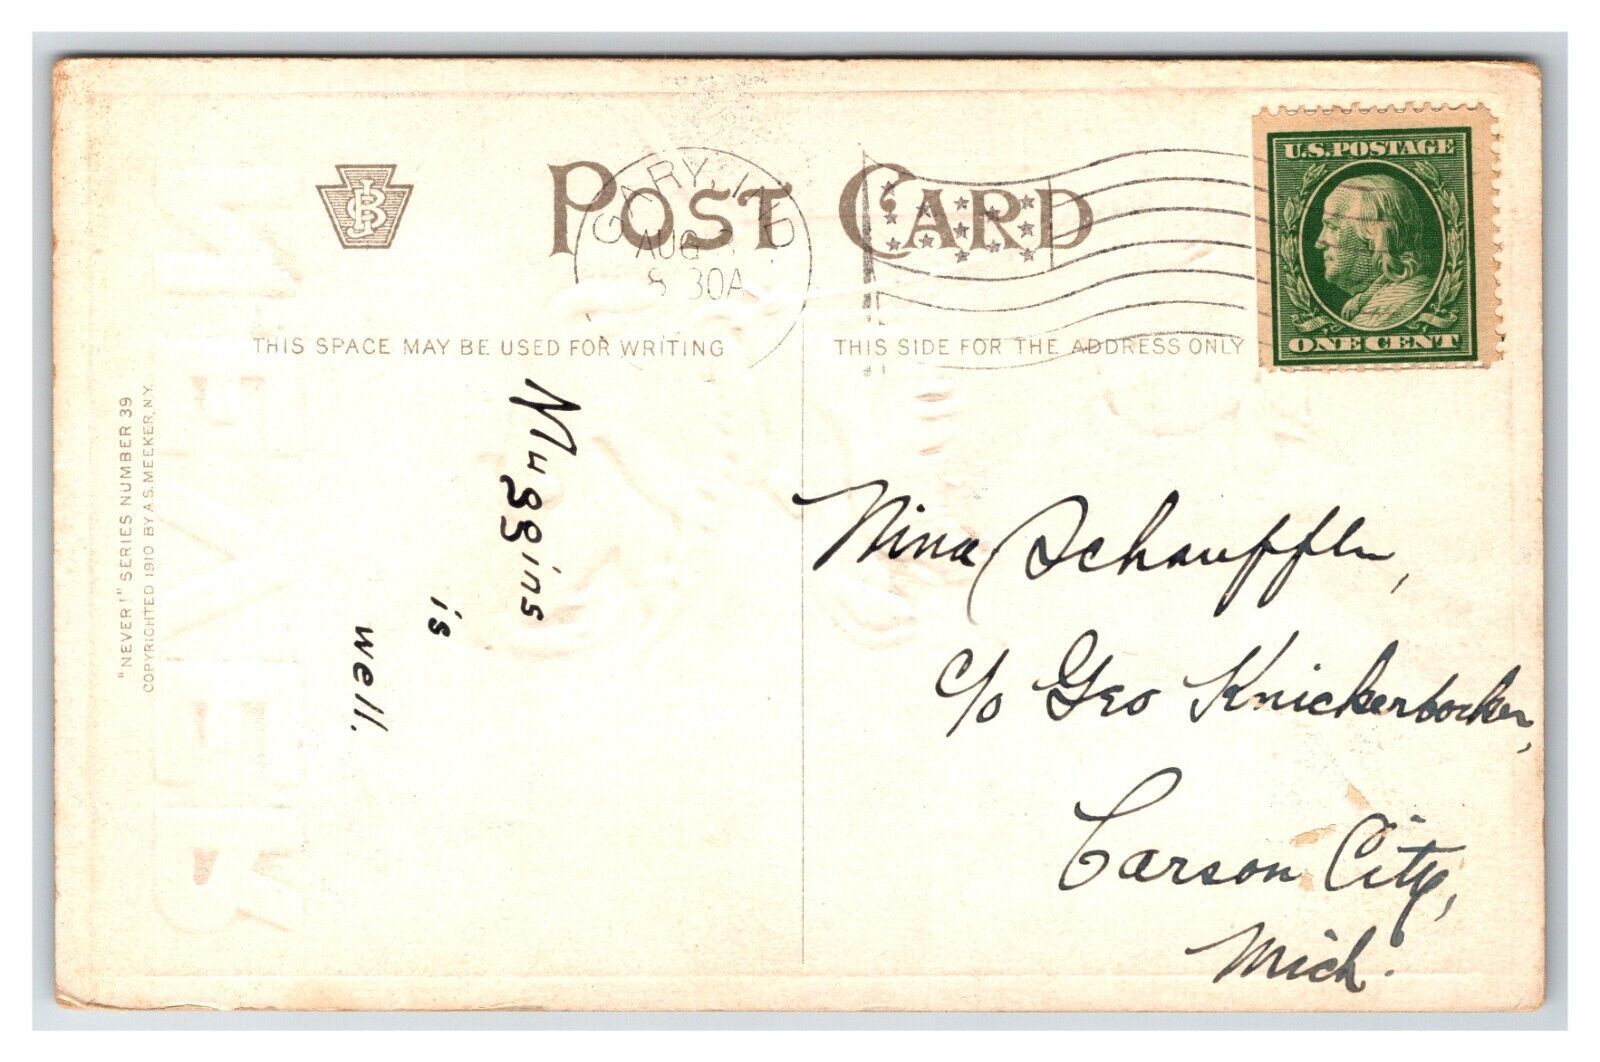 POST CARD
GARY, IND
AUG
8 30A
U.S. POSTAGE
ONE CENT
THIS SPACE MAY BE USED FOR WRITING
THIS SIDE FOR THE ADDRESS ONLY
"NEVER!" SERIES NUMBER 39
COPYRIGHTED 1910 BY A.S. MEEKER, N.Y.
Muggins
is
well.
Nina Schauffler,
c/o Geo Knickerbocker,
Carson City,
Mich.
NEVER